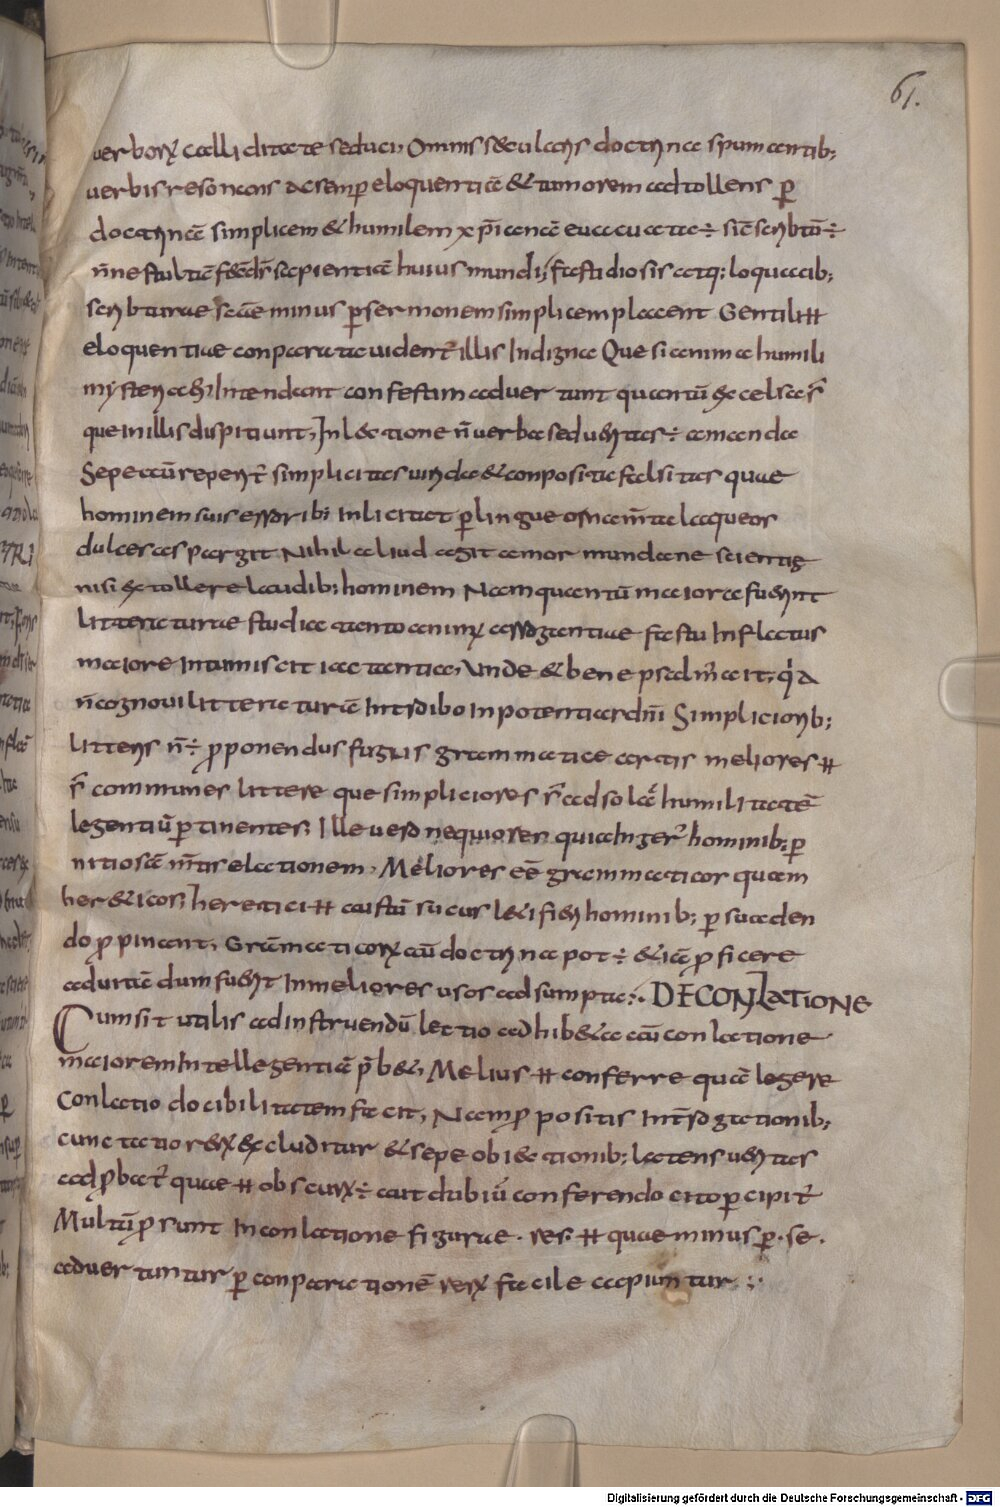 61.
uerborꝝ calliditate seduci, Omnis secularis doctrina spumantib;
uerbis resonans ac semp̄ eloquentiae & tumorem adtollens p̄
doctrinā simplicem & humilem xp̄ianā euacuata ÷ sic̄ scribtū ÷
n̄ne stultā fec̄ ds̄ sapientiā huius mundi, fastidiosis atq; loquacib;
scribturae sc̄ae minus p̄ sermonem simplicem placent Gentili ħ
eloquentiae conparatae uident᷑ illis Indignae Que si animo humili
mysteria eius Intendant confestim aduertunt quantū excelsa sꝉ
que in illis dispitiunt, In lectione n̄ uerba sed ueritas ÷ amanda
Sepe aū reperit᷑ simplicitas uiridica & conposita falsitas quae
hominem suis erroribꝫ Inlicitat p̄ lingue ornam̄ta laqueos
dulces aspargit Nihil aliud agit amor mundane scientie
nisi extollere laudib; hominem Nam quantū maiora fuerint
litteraturae studia tanto animꝰ arrogantiae fastu Inflatus
maiore Intumiscit iactantia, Unde & bene psalm̄ ait; qꝫa
n̄ cognoui litteraturā Introibo In potentia dn̄i Simpliciorib;
litteris n̄ ÷ p̄ponendus fugus grammatice artis meliores ħ
s̄ communes littere que simpliciores s̄ ad solā humilitatē
legentiū p̄tinentes; Ille uero nequiores quia Inger᷑ hominib; p̄
nitiosā m̄tis elationem, Meliores eē grammaticos quam
hereticos; heretici ħ austū sucus letiferi hominib; p̄ suaden
do p̄pinant, Grāmaticorꝝ aū doctrina pot ÷ etiā p̄ficere
ad uitā dum fuerit In meliores usos adsumpta:. DE CONLATIONE
Cum sit utilis ad instruendū lectio adhibeta aū conlatione
maiorem Intellegentiā p̄bet, Melius ħ conferre quā legere
Conlatio docibilitatem facit, Nam p̄positis Int̄rogationib;
cunctatio rerꝝ excluditur & sepe obiectionib; latens ueritas
adp̄bat᷑ quae ħ obscurꝝ ÷ aut dubiū conferendo cito p̄cipit᷑
Multū p̄sunt In conlatione figurae. res; ħ quae minus p̄ se.
aduertuntur p̄ conparationē rerꝝ facile capiuntur:.
Digitalisierung gefördert durch die Deutsche Forschungsgemeinschaft - DFG